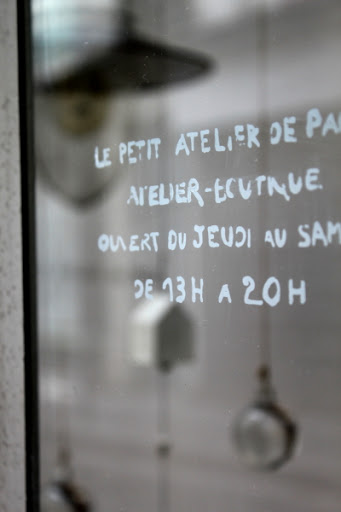 LE PETIT ATELIER DE PA
ATELIER-BOUTIQUE
OUVERT DU JEUDI AU SAM
DE 13H A 20H